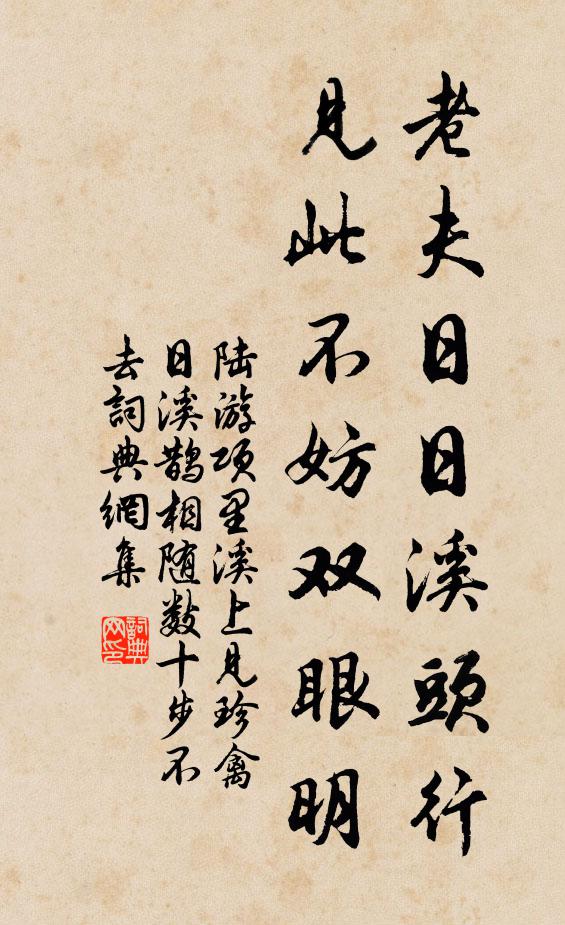 老夫日日溪頭行
見此不妨双眼明
陆游项里溪上見珍禽
日溪鹊相随数十步不
去詞典網集
詞典
网印